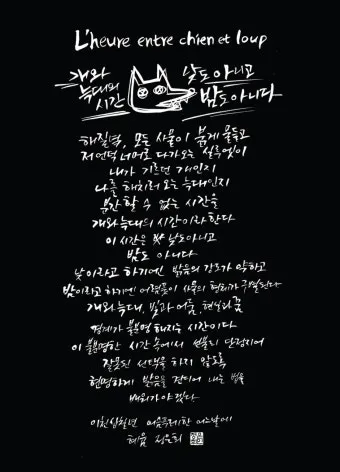 L'heure entre chien et loup
개와
늑대의
시간
낮도 아니고
밤도 아니다
해질녘, 모든 사물이 붉게 물들고
저 언덕 너머로 다가오는 실루엣이
내가 기르던 개인지
나를 해치러 오는 늑대인지
분간할 수 없는 시간을
개와 늑대의 시간이라 한다
이 시간은 낮도 아니고
밤도 아니다
낮이라고 하기엔 밝음의 강도가 약하고
밤이라고 하기엔 어렴풋이 사물의 형체가 구별된다
개와 늑대, 빛과 어둠, 현실과 꿈
경계가 불분명해지는 시간이다
이 불분명한 시간 속에서 섣불리 단정지어
잘못된 선택을 하지 않도록
현명하게 밝음을 견디어 내는 법을
배워가야겠다
이천십칠년 어느날에
정은희